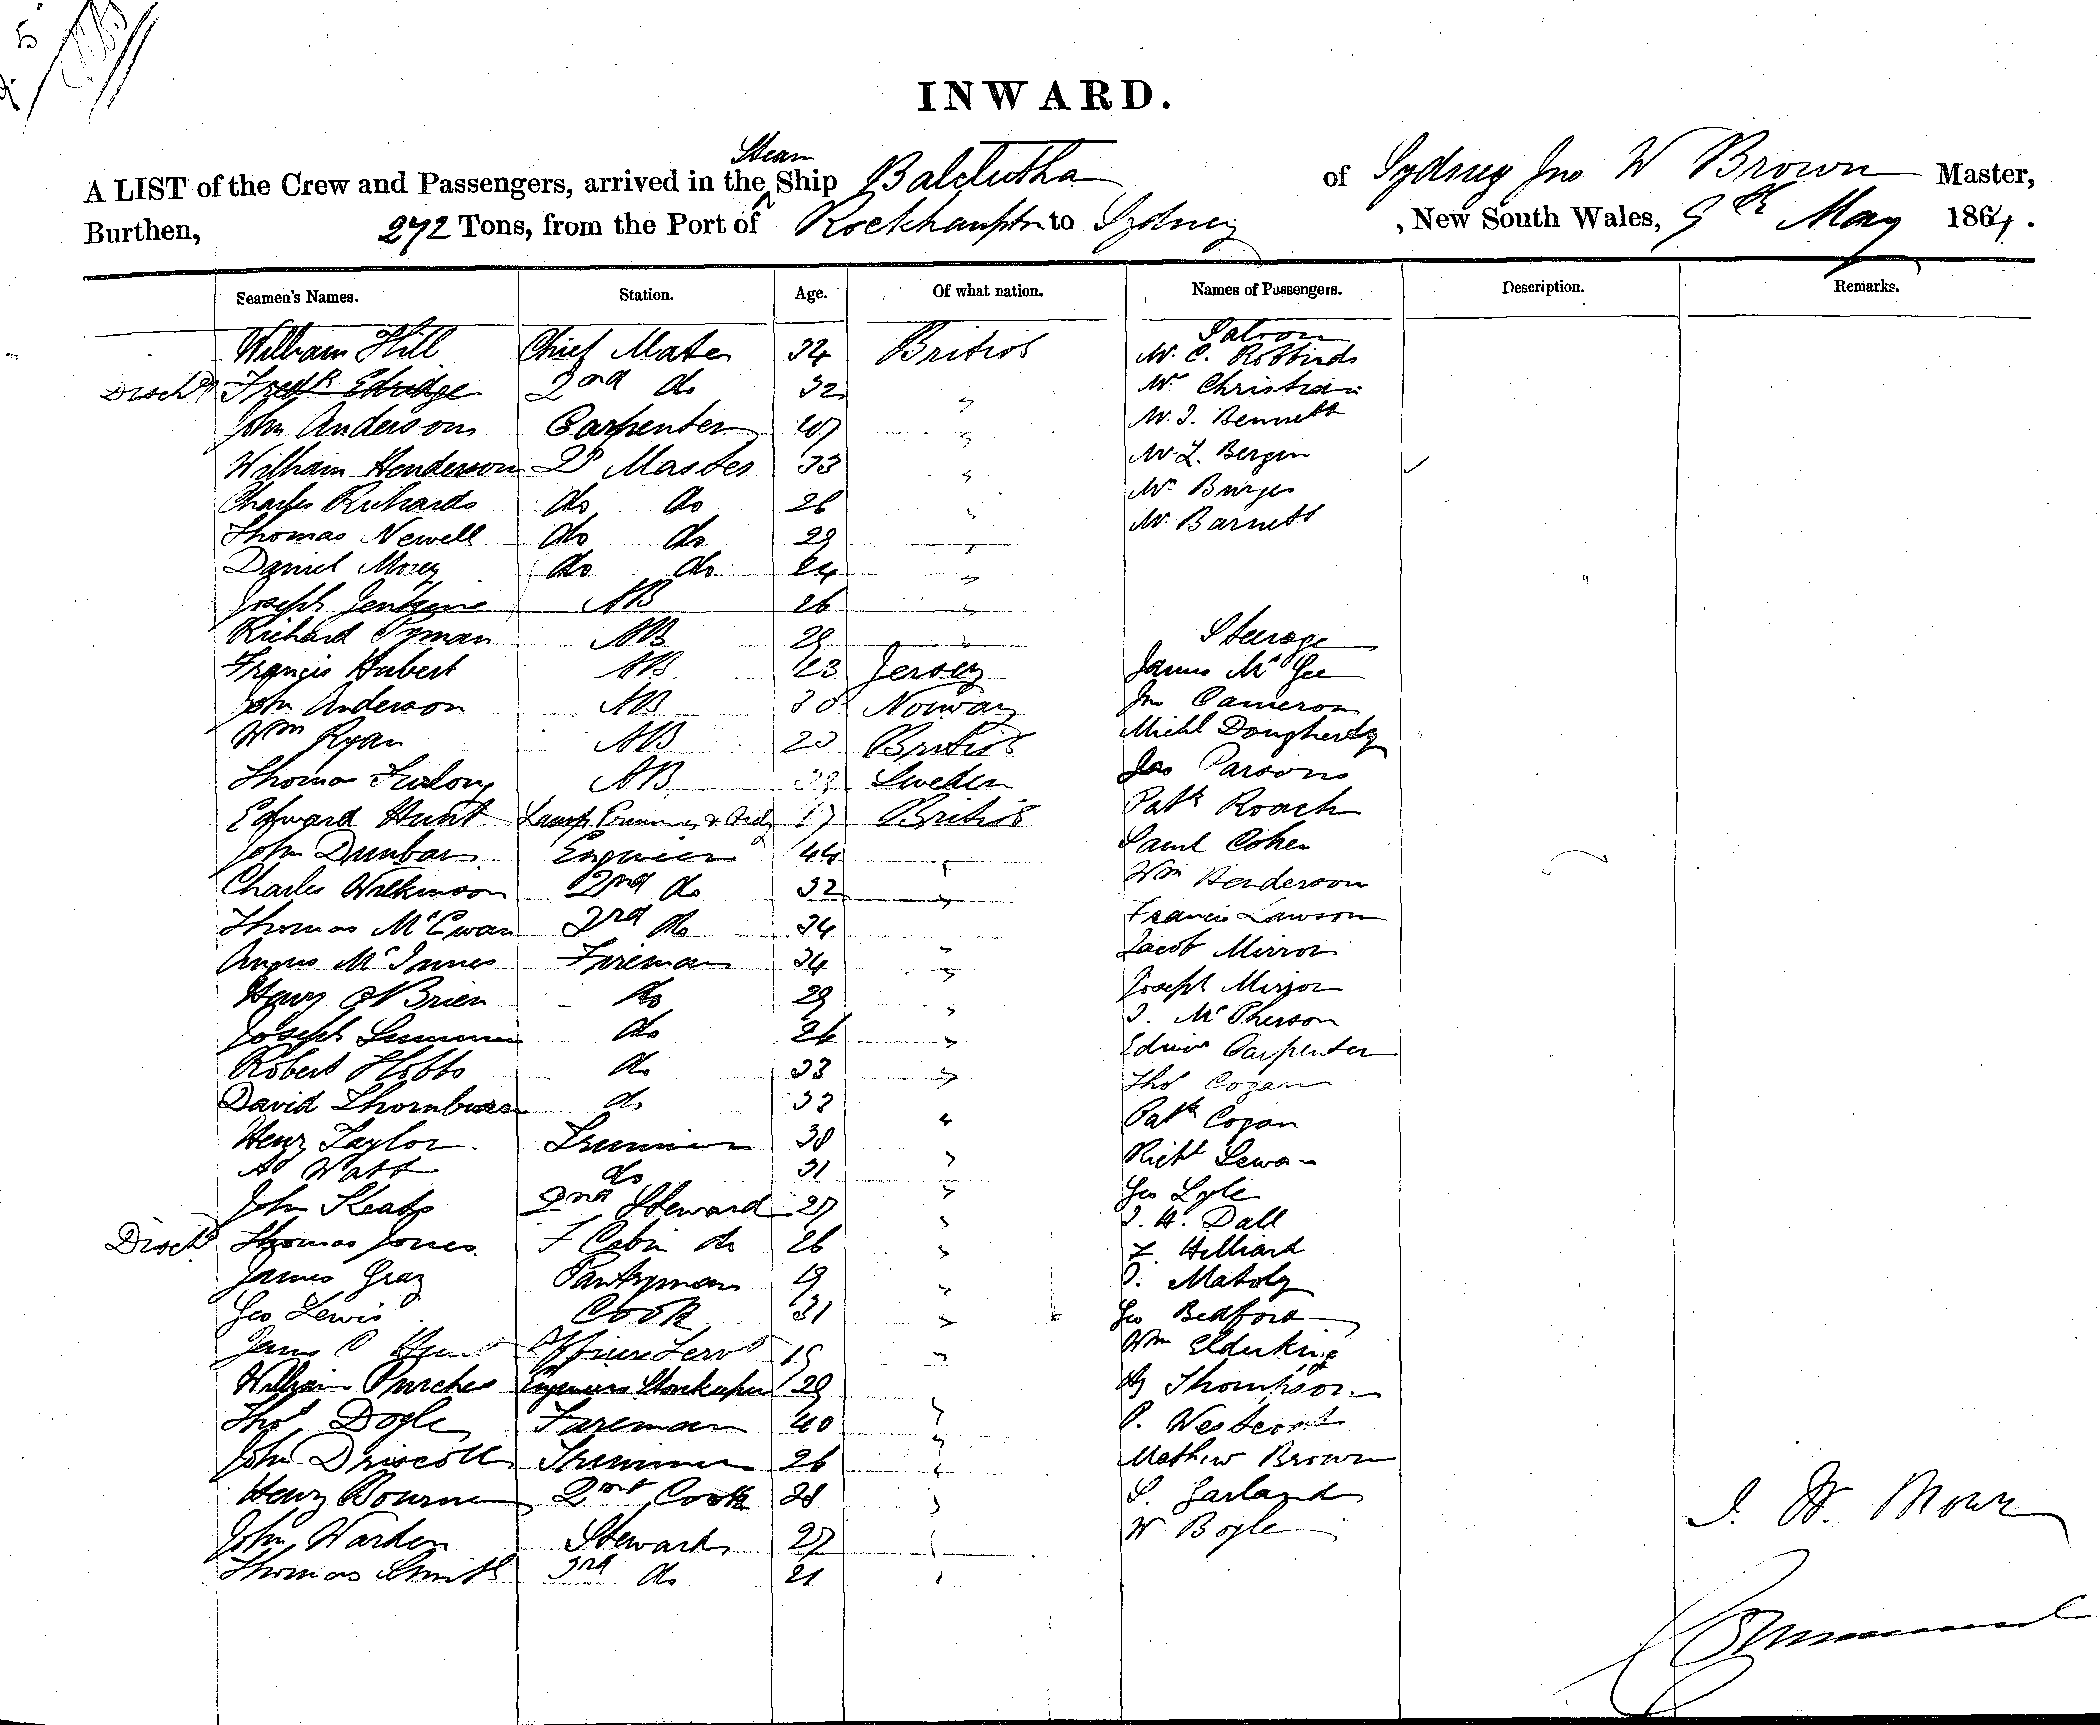 INWARD.
Steam
A LIST of the Crew and Passengers, arrived in the ^ Ship Balclutha of Sydney Jno W Brown Master,
Burthen, 272 Tons, from the Port of Rockhampton to Sydney , New South Wales, 9th May 1864.
Seamen's Names. Station. Age. Of what nation. Names of Passengers. Description. Remarks.
Saloon
William Hill Chief Mate 34 British Mr. C. Robbinds
Dischd Fredk Edridge 2nd do 32 " Mr Christian
John Anderson Carpenter 47 " Mr. J. Bennett
William Henderson Qr Master 33 " Mr L. Bergin
Charles Richards do do 26 " Mr Burges
Thomas Newell do do 29 " Mr. Barnett
Daniel Morey do do 24 "
Joseph Jenkins AB 26 "
Richard Pyman AB 29 " Steerage
Francis Hubert AB 23 Jersey James McGee
John Anderson AB 30 Norway Jno Cameron
Wm Ryan AB 23 British Michl Dougherty
Thomas Furlong AB Sweden Jas Parsons
Edward Hunt Lamp Trimmer & Ordy 17 British Patk Roach
John Dunbar Engineer 44 " Saml Cohen
Charles Wilkinson 2nd do 32 " Wm Henderson
Thomas McEwan 3rd do 34 Francis Lawson
Angus McInnes Fireman 34 " Jacob Mirror
Henry O'Brien do 29 " Joseph Mirror
Joseph do 26 " J. McPherson
Robert Hobbs do 33 " Edwin Carpenter
David Thornburn do 33 Thos Cogan
Henry Taylor Trimmer 30 " Patk Cogan
Ad Watt do 31 " Richd
John Keats 2nd Steward 27 " Geo Lyle
Dischd Thomas Jones F Cabin do 26 " J. H. Dall
James Gray Pantryman 19 " Z. Hilliard
Geo Lewis Cook 31 "
James C Officers Servt 19 " Geo Bedford
William Purches Engineers Storekeeper 29 Wm Elderking
Thos Dogle Fireman 40 " Hy Thompson
John Driscoll Trimmer 26 " P. Westcott
Henry Bourne 2nd Cook 28 " Mathew Brown
John Warden Steward 27 " S. Garland
Thomas Smith 3rd do 21 " W Bogle